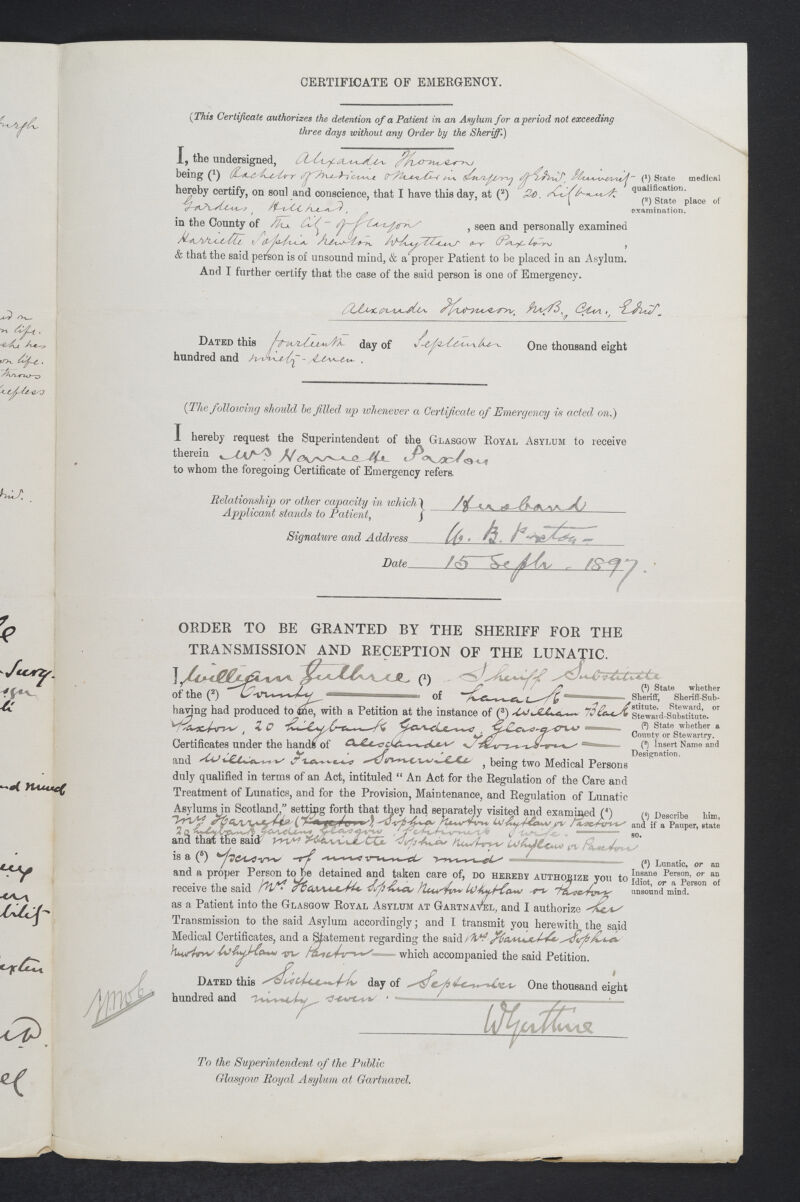 CERTIFICATE OF EMERGENCY.
(This Certificate authorizes the detention of a Patient in an Asylum for a period not exceeding
three days without any Order by the Sheriff.)
I, the undersigned, Alexander Thomson
being (¹) Bachelor of Medicine & Master in Surgery of Edin. Universit
(¹) State medical
qualification.
hereby certify, on soul and conscience, that I have this day, at (²) 20. Lilybank
(²) State place of
examination.
Gardens, Hillhead,
in the County of The City of Glasgow , seen and personally examined
Harriette Sophia Newton Whytlaw or Paxton ,
& that the said person is of unsound mind, & a proper Patient to be placed in an Asylum.
And I further certify that the case of the said person is one of Emergency.
Alexander Thomson, M.B., C.M., Edin.
DATED this fourteenth day of September One thousand eight
hundred and ninety-seven.
(The following should be filled up whenever a Certificate of Emergency is acted on.)
I hereby request the Superintendent of the GLASGOW ROYAL ASYLUM to receive
therein Mrs Harriette Paxton
to whom the foregoing Certificate of Emergency refers.
Relationship or other capacity in which
Applicant stands to Patient, } Husband
Signature and Address W. B. Paxton
Date 15 Septr. 1897.
ORDER TO BE GRANTED BY THE SHERIFF FOR THE
TRANSMISSION AND RECEPTION OF THE LUNATIC.
I, William Guthrie (¹) Sheriff Substitute
of the (²) County of Lanark
(¹) State whether
Sheriff, Sheriff-Sub-
stitute, Steward, or
Steward-Substitute.
having had produced to me, with a Petition at the instance of (³) William Black
Paxton, 20 Lilybank Gardens, Glasgow
(²) State whether a
County or Stewartry.
Certificates under the hands of Alexander Thomson
(³) Insert Name and
Designation.
and William Francis Somerville , being two Medical Persons
duly qualified in terms of an Act, intituled “ An Act for the Regulation of the Care and
Treatment of Lunatics, and for the Provision, Maintenance, and Regulation of Lunatic
Asylums in Scotland,” setting forth that they had separately visited and examined (⁴)
Mrs Harriette (Paxton) Sophia Newton Whytlaw or Paxton
20 Lilybank Gardens Glasgow, Petitioner's wife.
(⁴) Describe him,
and if a Pauper, state
so.
and that the said Mrs Harriette Sophia Newton Whytlaw or Paxton
is a (⁵) person of unsound mind
(⁵) Lunatic, or an
Insane Person, or an
Idiot, or a Person of
unsound mind.
and a proper Person to be detained and taken care of, DO HEREBY AUTHORIZE you to
receive the said Mrs Harriette Sophia Newton Whytlaw or Paxton
as a Patient into the GLASGOW ROYAL ASYLUM AT GARTNAVEL, and I authorize her
Transmission to the said Asylum accordingly; and I transmit you herewith the said
Medical Certificates, and a Statement regarding the said Mrs Harriette Sophia
Newton Whytlaw or Paxton which accompanied the said Petition.
DATED this Sixteenth day of September One thousand eight
hundred and ninety seven.
W Guthrie
To the Superintendent of the Public
Glasgow Royal Asylum at Gartnavel.